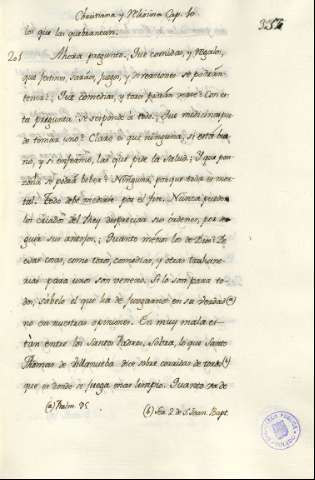 Christiana y Maxima Cap. 60
lo que las quebrantan.
201 Ahora pregunto, Que comidas, y regalos,
que festines, saraos, juegos, y recreaciones se podràn
tomar? Que comedias, y toros podràn verse? Con es-
ta pregunta se responde à todo. Que medicina pue-
de tomar uno? Claro es que ninguna, si està bue-
no, y si enfermo, las que pide la salud; Y que pon-
zoña se podrà beber? Ninguna, porque toda es mor-
tal. Todo debe medirse por el fin. Nunca pueden
los criados del Rey despreciar sus ordenes, por se-
guir sus antojos. Quanto menos los de Dios? De
esas cosas, como toros, comedias, y otras
para uno son veneno. Si lo son para to-
dos, sabelo el que ha de juzgarnos en su verdad (a)
no en nuestras opiniones. En muy mala es-
tàn entre los Santos Padres. Sobra, lo que Santo
Thomas de Villanueba dice sobre corridas de toros (b)
que es donde se juega mas limpio. Quanto va de
(a) Psalm. 95. (b) Ser. 2 de S. Joan. Bapt.